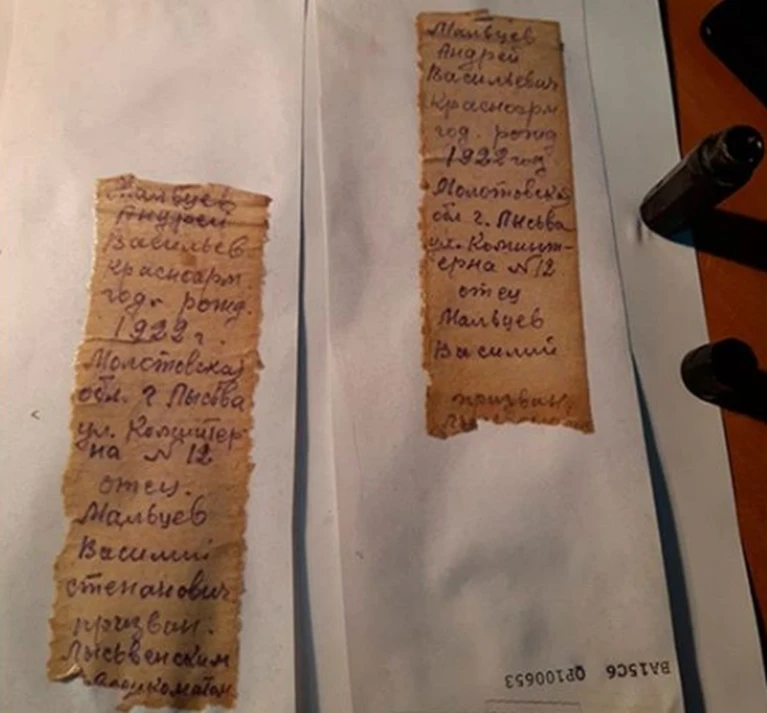 Мальцев
Андрей
Васильев
красноарм
год. рожд.
1922 г.
Молотовская
обл. г Лысьва
ул. Коминтер-
на N 12
отец.
Мальцев
Василий
степанович
призван.
Лысьвенским
Мальцев
Андрей
Васильевич
красноарм
год. рожд
1922 год
Молотовская
обл. г. Лысьва
ул. Коминт-
ерна N 12
отец
Мальцев
Василий
призван.
BA15C6 QP100653